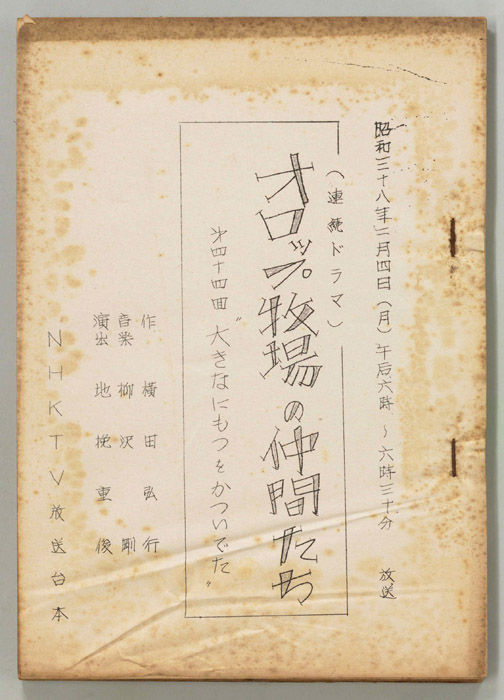 昭和三十八年二月四日(月)午后六時～六時三十分 放送
(連続ドラマ)
オロップ牧場の仲間たち
第四十四回 "大きなにもつをかついでた"
作 横田弘行
音楽 柳沢剛
演出 地挽重俊
NHKTV放送台本